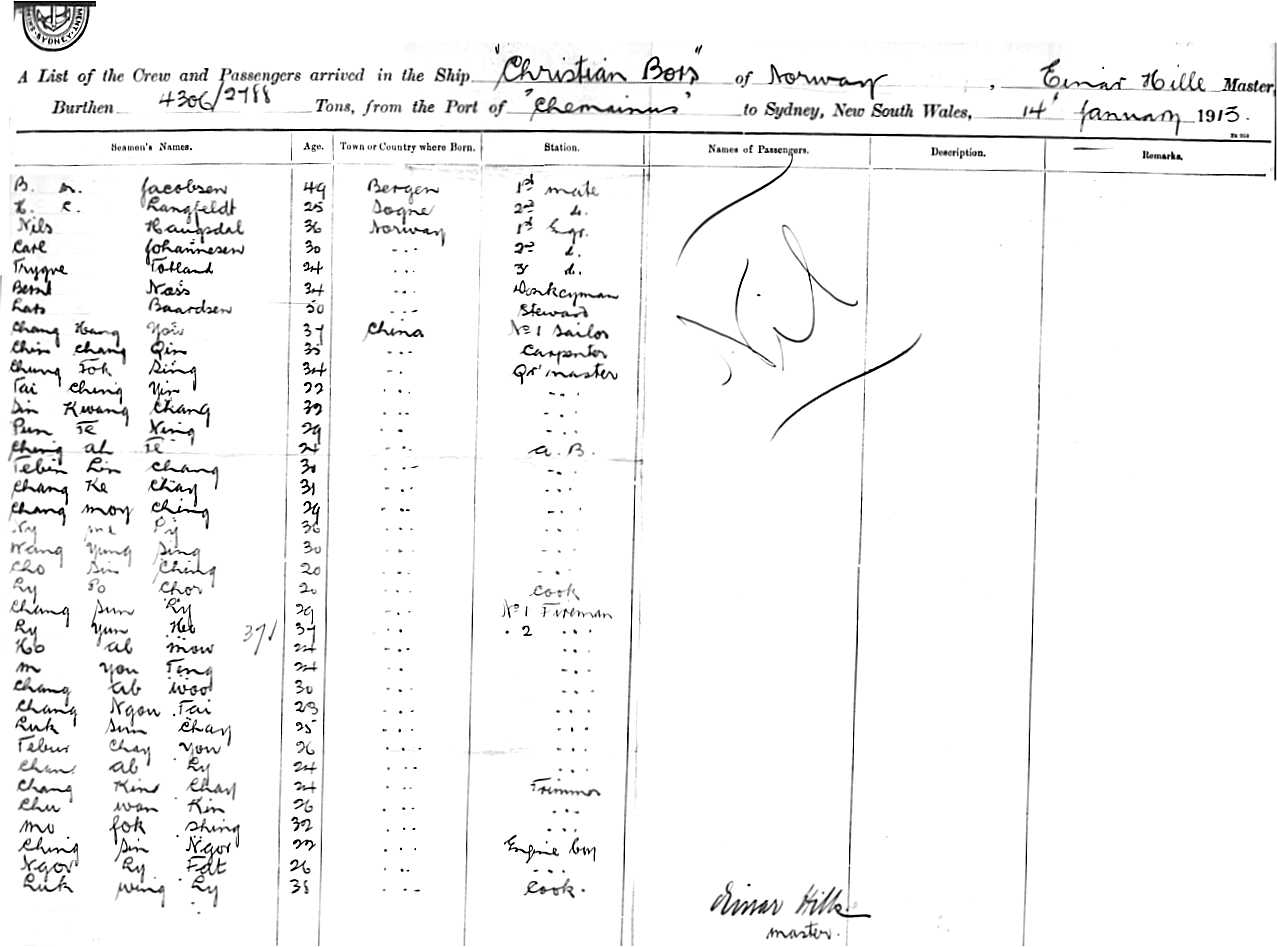 MENT. SYDNEY.
A List of the Crew and Passengers arrived in the Ship "Christian Bors" of Norway, Einar Hille Master
Burthen 4306/2788 Tons, from the Port of "Chemainus" to Sydney, New South Wales, 14 January 1913.
Seamen's Names. Age. Town or Country where Born. Station. Names of Passengers. Description. Remarks.
B. M. Jacobsen 49 Bergen 1st mate
H. C. Langfeldt 25 Sogne 2nd d.
Nils Haugsdal 36 Norway 1st Engr.
Carl Johannesen 30 ... 2nd d.
Trygve Totland 24 ... 3 d.
Bernt Næss 34 ... Donkeyman
Lars Baardsen 50 ... Steward
Nil
Chang Hang You 37 China No 1 Sailor
Chin Chang Qin 35 ... Carpenter
Chung Fok Sing 34 ... Qr master
Tai Ching Yin 22 ... ...
Sin Kwang Chang 32 ... ...
Pun Te Ning 29 ... ...
Ching Ah Te 24 ... A.B.
Tebin Lin Chang 30 ... ...
Chang Ke Chay 31 ... ...
Chang Moy Ching 29 ... ...
Ny Me Py 36 ... ...
Wang Yung Sing 30 ... ...
Cho Sin Ching 20 ... ...
Ly Po Chor 20 ... Cook
Chang Sun Ly 29 ... No 1 Fireman
Ly Yun Hee 37 37 ... . 2 ...
Ho Ab Mow 24 ... ...
M You Ting 24 ... ...
Chang Ab Woo 30 ... ...
Chang Ngou Tai 23 ... ...
Luk Sun Chay 25 ... ...
Tebur Chay You 26 ... ...
Chan Ab Ly 24 ... ...
Chang Kind Chay 24 ... Trimmer
Chu Wan Kin 26 ... ...
Mo Fok Shing 32 ... ...
Ching Sin Ngor 22 ... Engine boy
Ngor Ly Fat 26 ... ...
Luk Wing Ly 38 ... Cook.
Einar Hille
master.